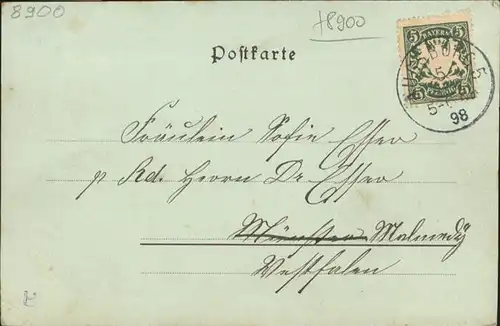 8900
+8900
Postkarte
BAYERN
5 5
5 5
PFENNIG
5
98
Fräulein Sofie Esser
p Ad. Herrn Dr. Esser
Münster Malmedy
Westfalen